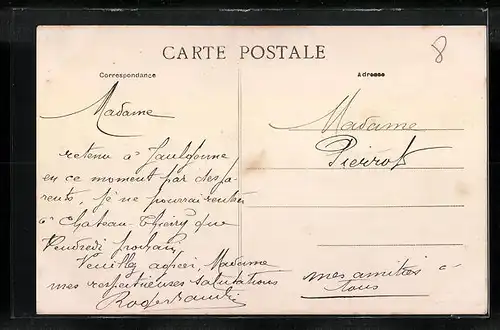 CARTE POSTALE
8
Correspondance
Madame
retenu à Jaulgonne
en ce moment par des pa-
rents, je ne pourrai rentrer
à Château-Thierry que
Vendredi prochain
Veuillez agréer, Madame
mes respectueuses salutations
Adresse
Madame
Pierrot
mes amitiés à
tous